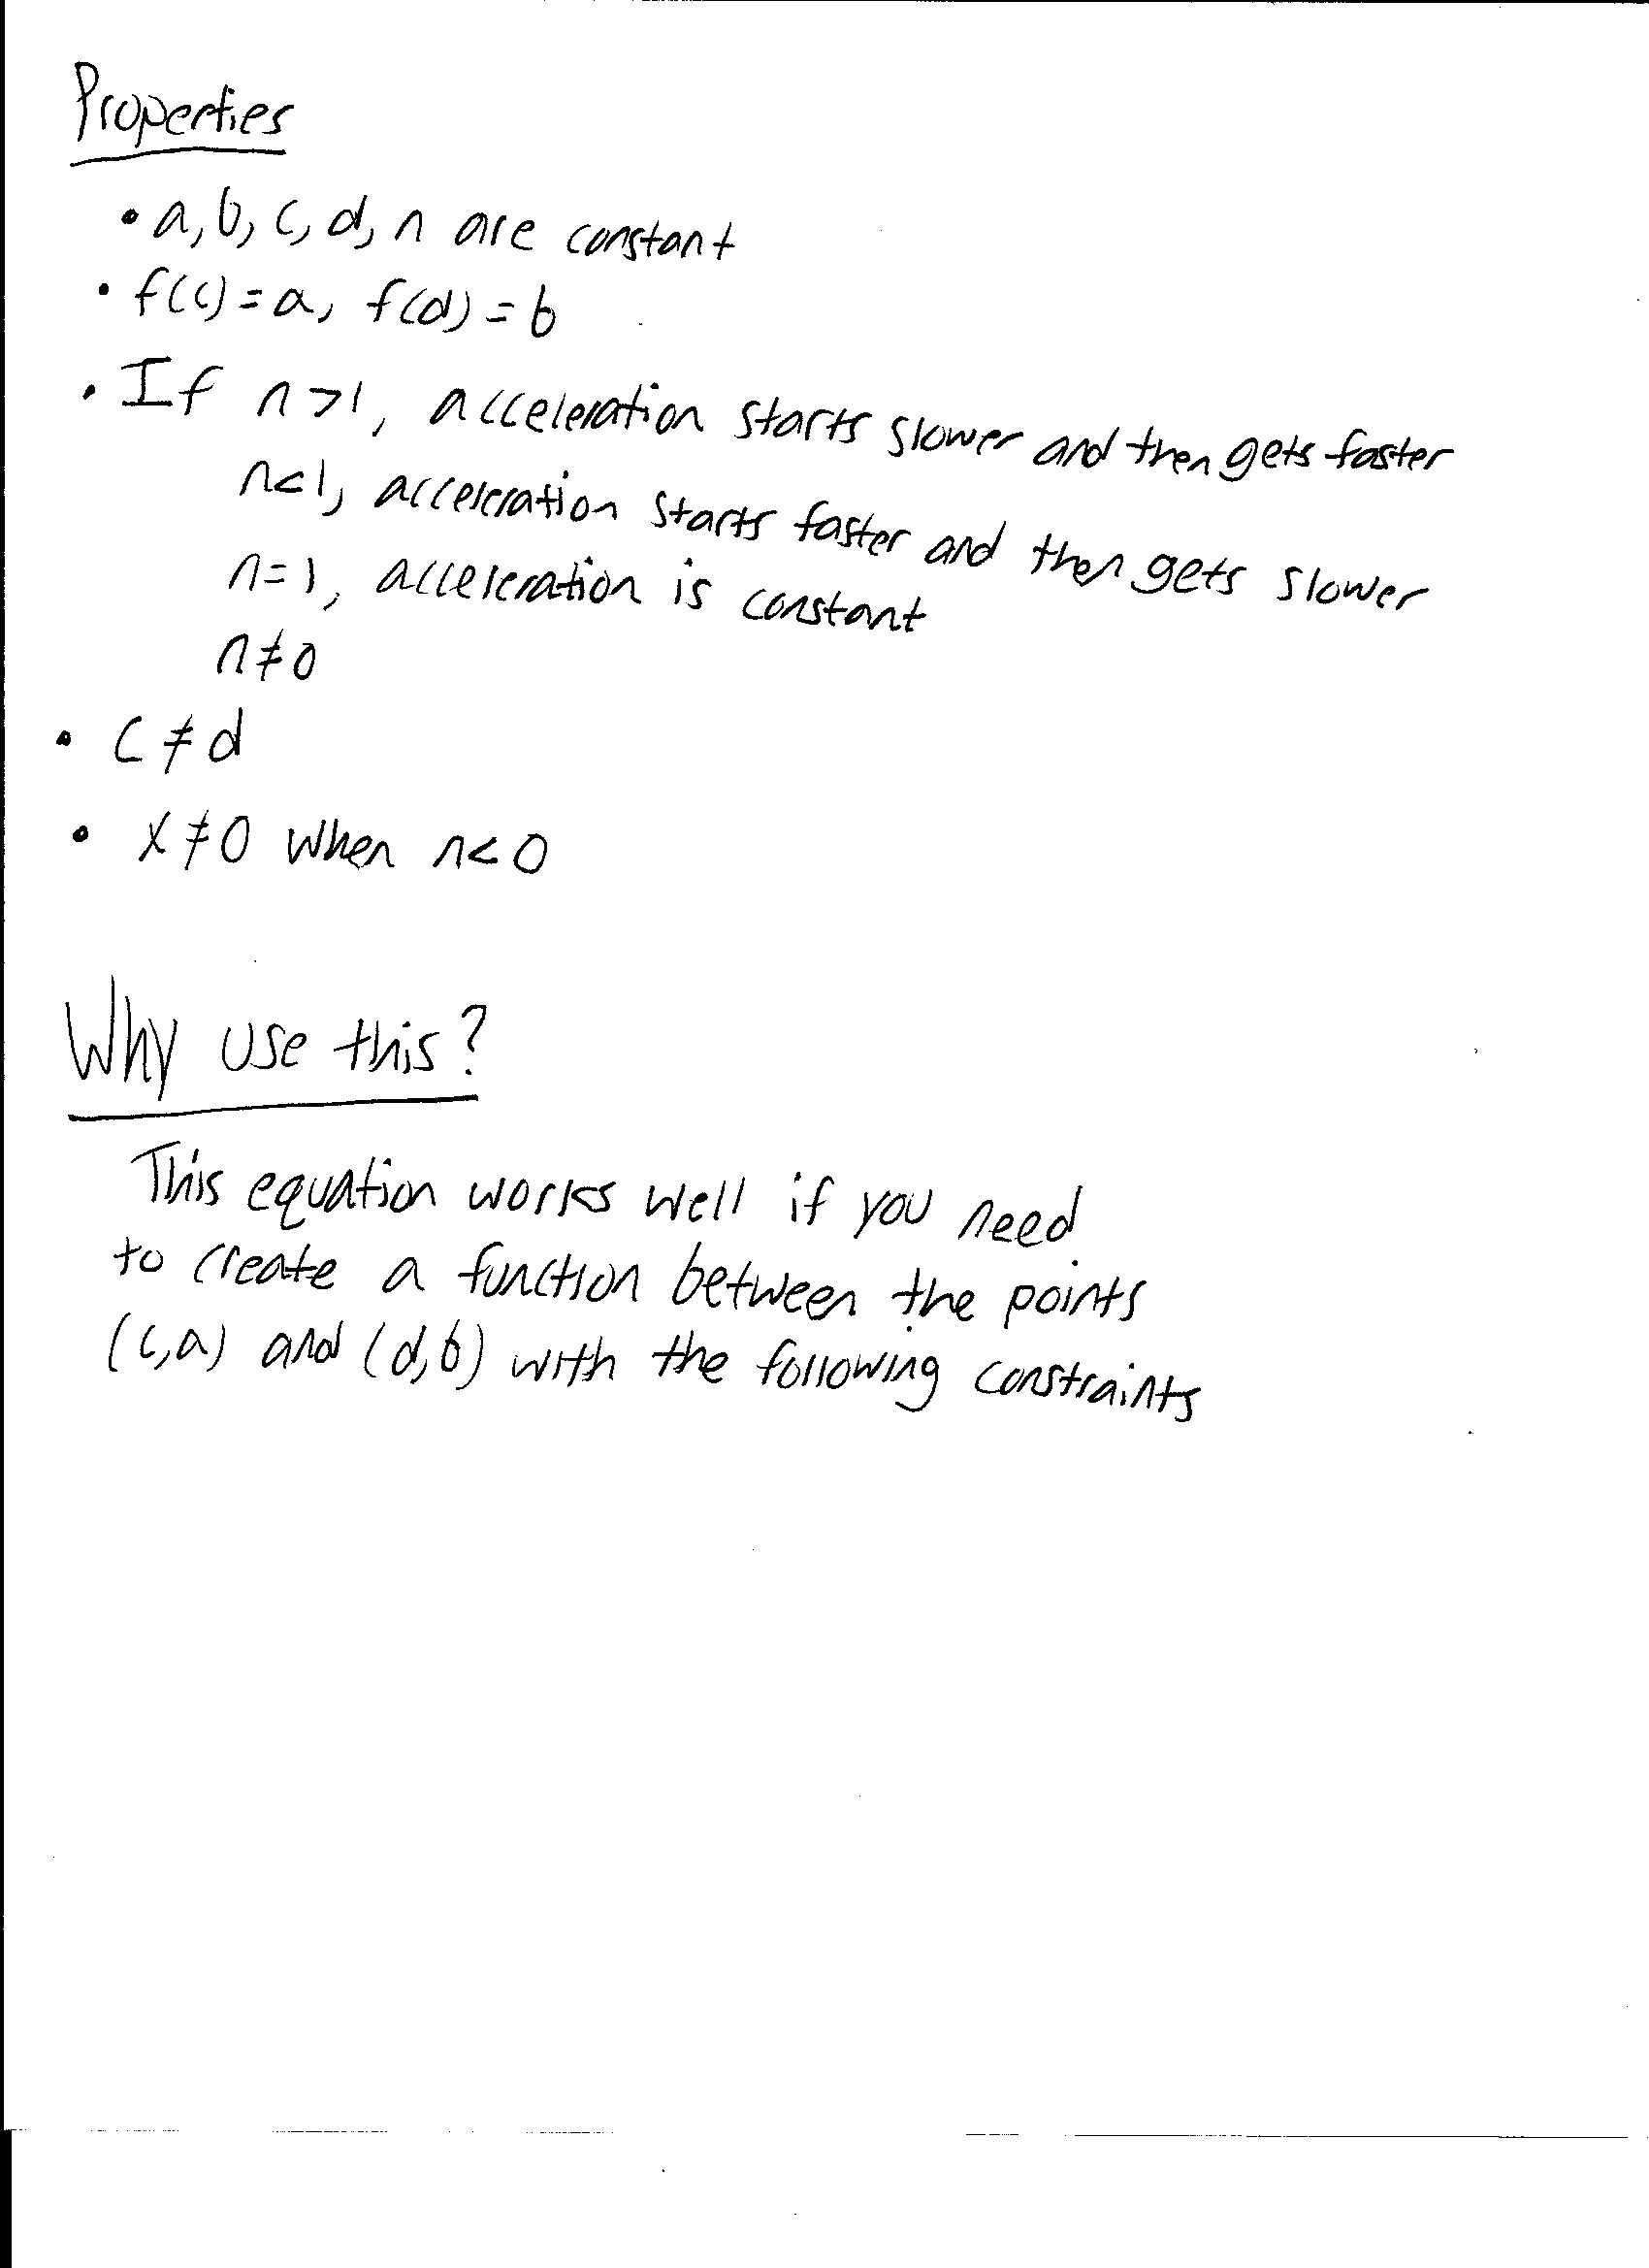 Properties
• a, b, c, d, n are constant
• f(c) = a, f(d) = b
• If n > 1, acceleration starts slower and then gets faster
n < 1, acceleration starts faster and then gets slower
n = 1, acceleration is constant
n ≠ 0
• c ≠ d
• x ≠ 0 when n < 0
Why use this?
This equation works well if you need
to create a function between the points
(c,a) and (d,b) with the following constraints